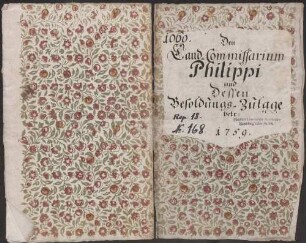 1000.
Den
Land Commissarium
Philippi
und
Deßen
Besoldungs-Zulage
betr:
Rep. 18.
N. 168.
1759.